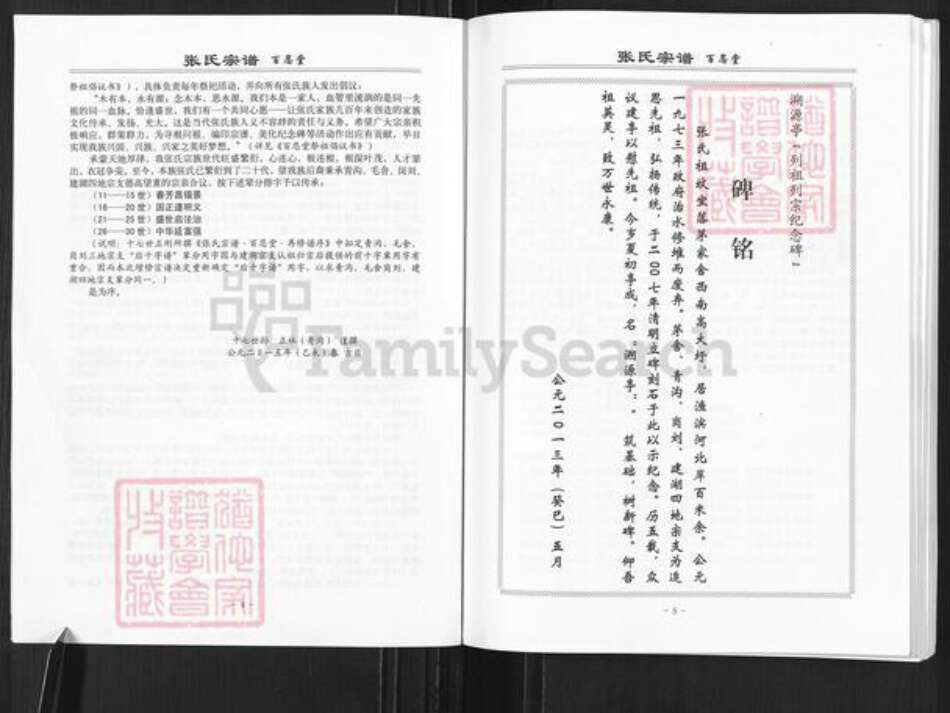 张氏宗谱 百忍堂
祭祖倡议书》），具体负责每年祭祀活动，并向所有张氏族人发出倡议：
“木有本，水有源；念木本，思水源。我们本是一家人，血管里流淌的是同一先
祖的同一血脉。恰逢盛世，我们有一个共同心愿——让张氏家族几百年来创造的家族
文化传承、发扬、光大。这是当代张氏族人义不容辞的责任与义务。希望广大宗亲积
极响应，群策群力，为寻根问祖、编印宗谱、美化纪念碑等活动作出应有贡献，早日
实现我族兴国、兴族、兴家之美好梦想。”（详见《百忍堂祭祖倡议书》）
承蒙天地厚泽，我张氏宗族世代旺盛繁衍，心连心，根连根，根深叶茂，人才辈
出，衣冠争荣。至今，本族张氏已繁衍到了二十代。望我族后裔秉承青沟、毛舍、岗刘、
建湖四地宗支德高望重的宗亲合议，按下述辈分排字予以传承：
（11——15 世）春芳昌锦景
（16——20 世）国正道明义
（21——25 世）盛世启法治
（26——30 世）中华延富强
（说明：十七世正刚所撰《张氏宗谱·百忍堂·再修谱序》中拟定青沟、毛舍、
岗刘三地宗支“后十字谱”辈分两字因与建湖宗支认祖归宗后提供的前十字辈用字有
重合，因而本次增修宗谱决定重新确定“后十字谱”用字，以求青沟、毛舍岗刘、建
湖四地宗支辈分同一。）
是为序。
十七世孙 正
（青沟） 谨撰
公元二〇一五年（乙未）春 吉旦
FamilySearch
猶他家譜學會收藏
张氏宗谱 百忍堂
溯源亭“列祖列宗纪念碑”
碑 铭
张氏祖坟坐落茅家舍西南高大圩，居渔滨河北岸百米余。公元
一九七三年政府治水修堆而废弃。茅舍、青沟、岗刘、建湖四地宗支为追
思先祖，弘扬传统，于二00七年清明立碑刻石于此以示纪念。历五载，众
议建亭以慰先祖。今岁夏初亭成，名“溯源亭”。筑基础，树新碑。仰吾
祖英灵，致万世永康。
公元二〇一三年（癸巳）五月
猶他家譜學會收藏
- 5 -